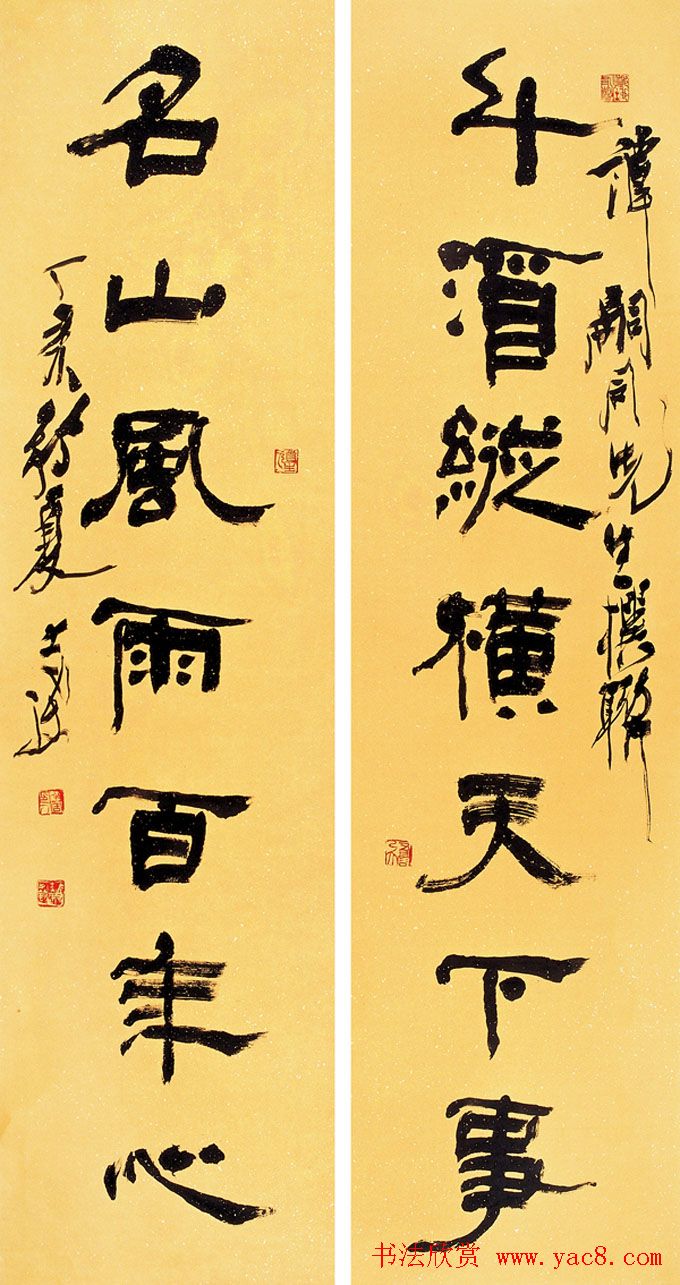 譚嗣同先生撰聯
斗酒縱橫天下事
名山風雨百年心
丁亥初夏
书法欣赏 www.yac8.com